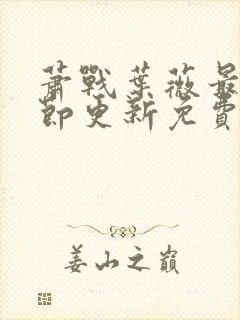 蕭戰葉薇最
節更新免費
姜山之巔